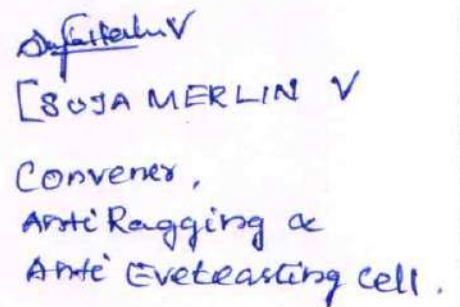 [SUJA MERLIN V
Convener,
Anti Ragging &
Anti Eveteasting cell.